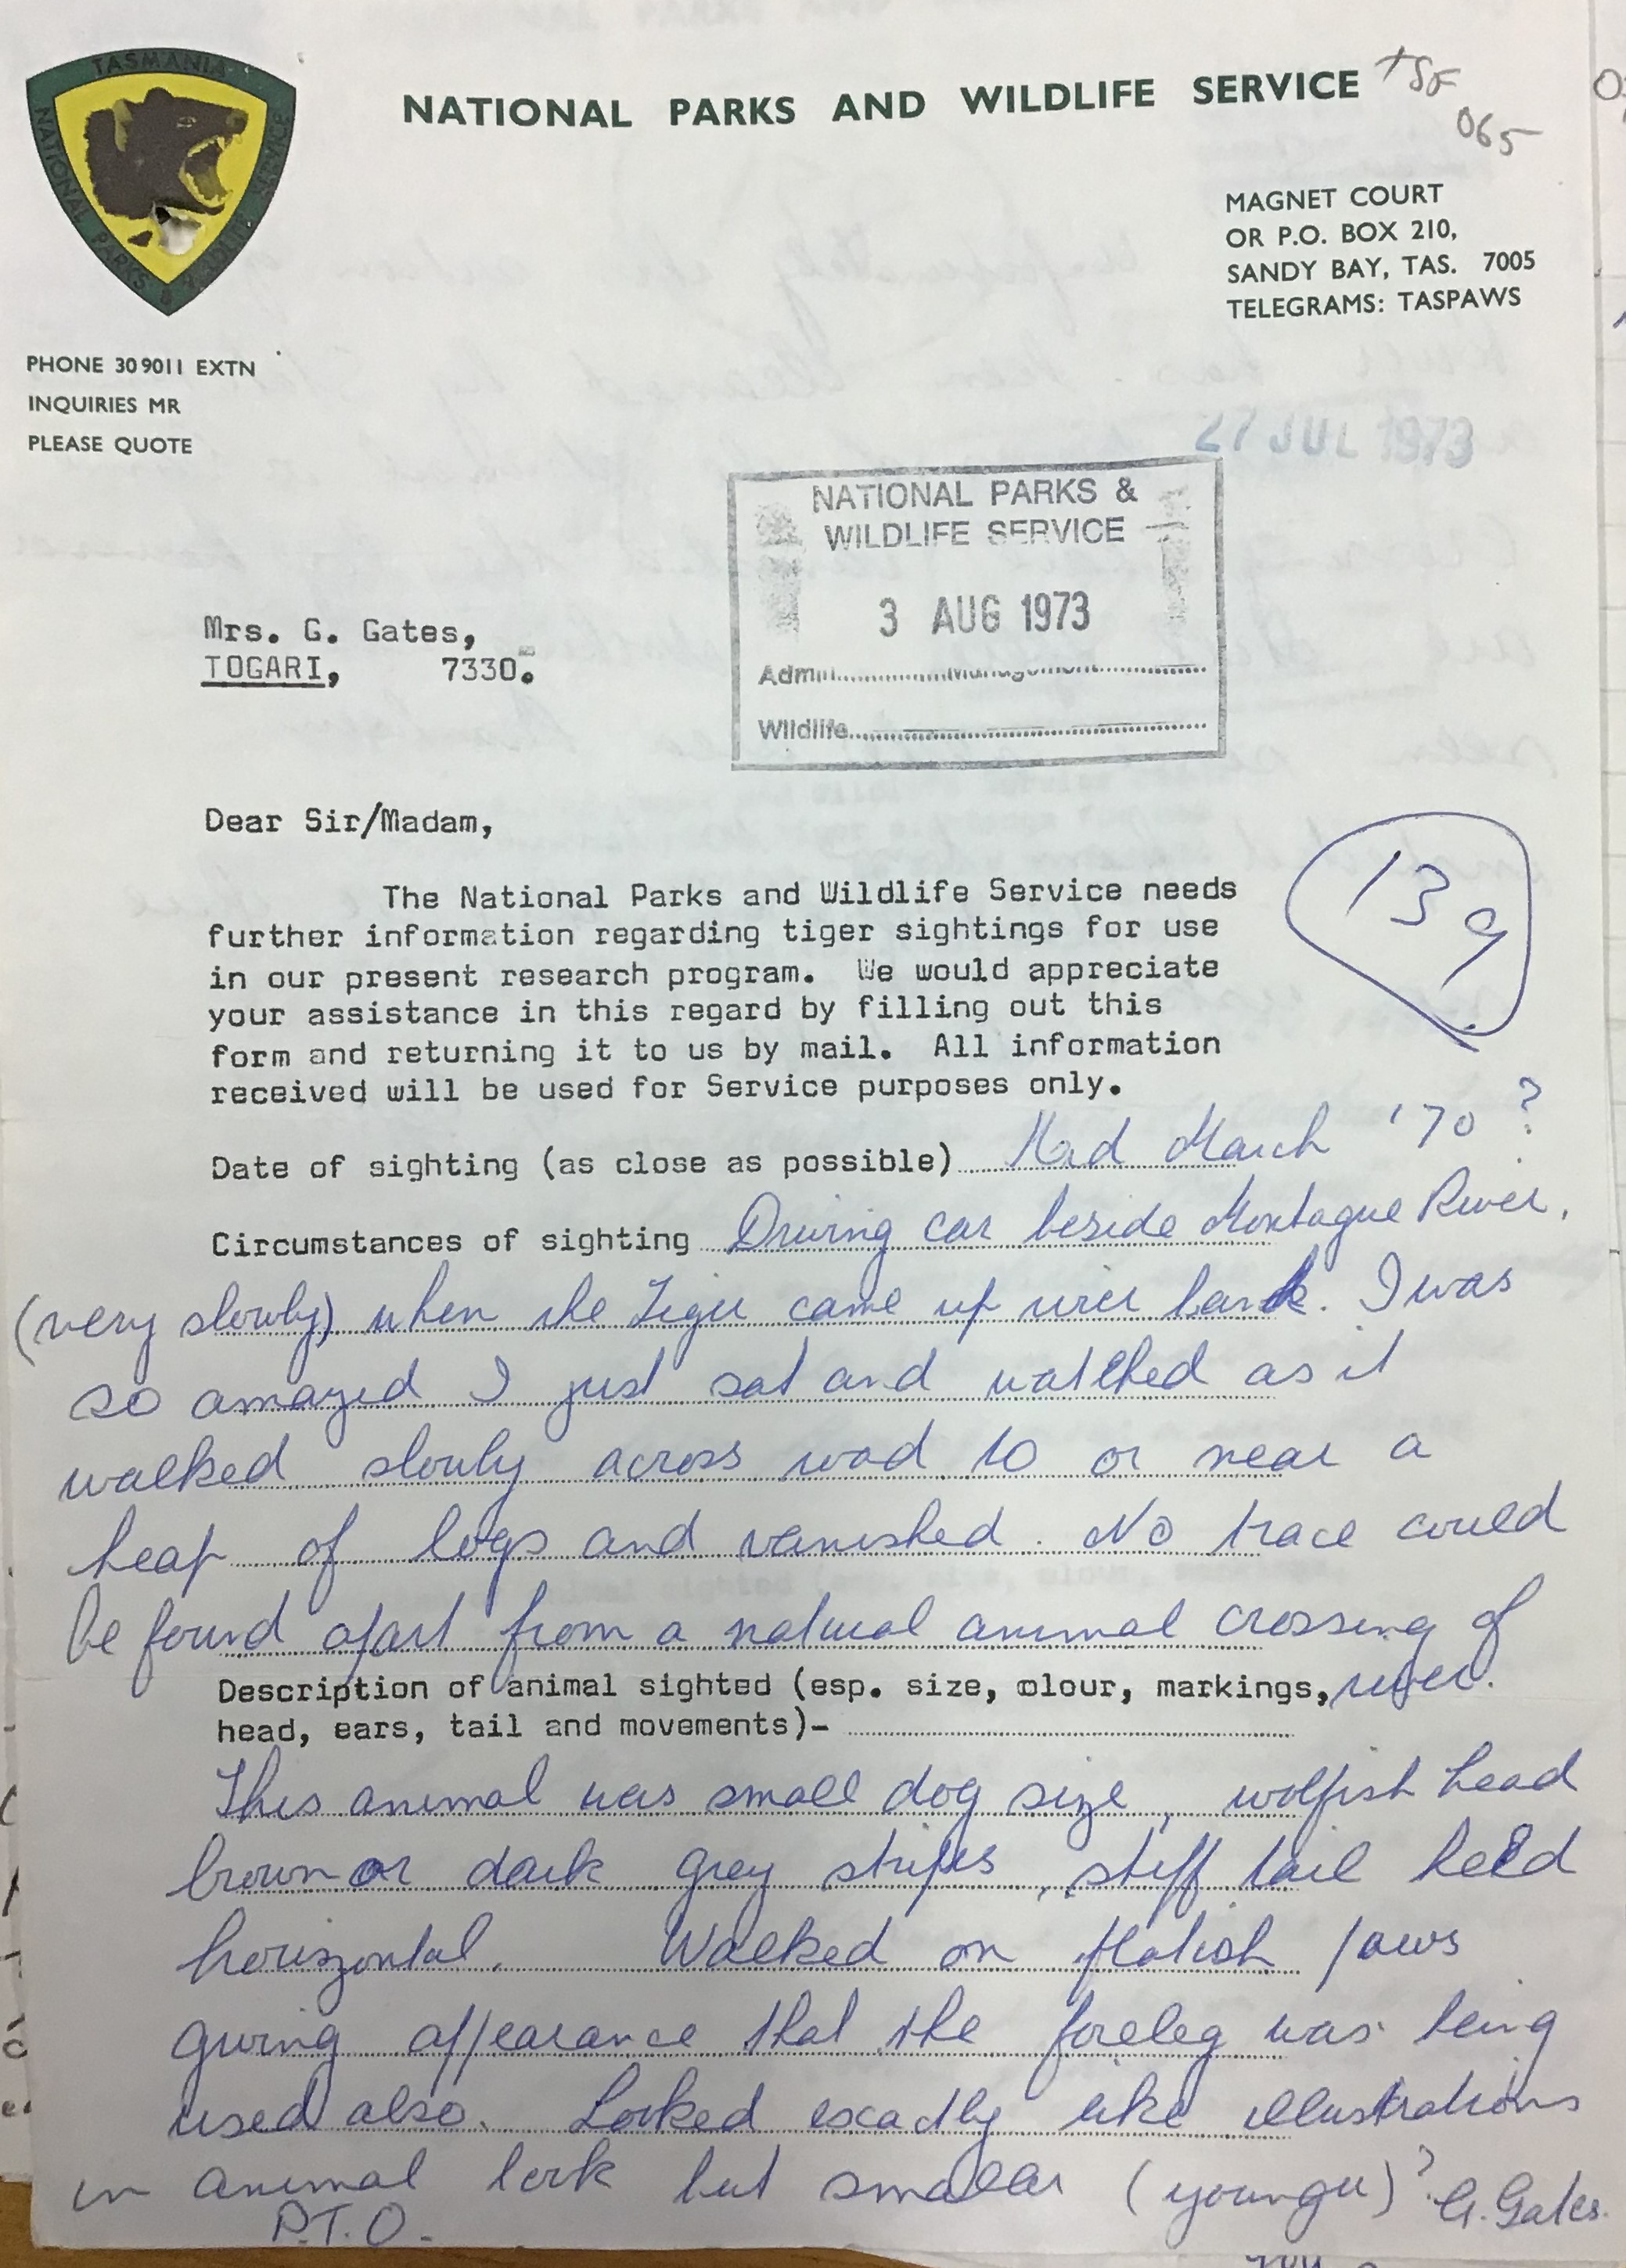 TASMANIA
NATIONAL PARKS & WILDLIFE SERVICE
NATIONAL PARKS AND WILDLIFE SERVICE
TSF
065
MAGNET COURT
OR P.O. BOX 210,
SANDY BAY, TAS. 7005
TELEGRAMS: TASPAWS
PHONE 309011 EXTN
INQUIRIES MR
PLEASE QUOTE
27 JUL 1973
NATIONAL PARKS &
WILDLIFE SERVICE
3 AUG 1973
Admin Management
Wildlife
Mrs. G. Gates,
TOGARI, 7330.
Dear Sir/Madam,
139
The National Parks and Wildlife Service needs
further information regarding tiger sightings for use
in our present research program. We would appreciate
your assistance in this regard by filling out this
form and returning it to us by mail. All information
received will be used for Service purposes only.
Date of sighting (as close as possible) Mid March '70 ?
Circumstances of sighting Driving car beside Montague River,
(very slowly) when the Tiger came up river bank. I was
so amazed I just sat and watched as it
walked slowly across road to or near a
heap of logs and vanished. No trace could
be found apart from a natural animal crossing of
river.
Description of animal sighted (esp. size, colour, markings,
head, ears, tail and movements)-
This animal was small dog size, wolfish head
brown or dark grey stripes, stiff tail held
horizontal. Walked on flatish paws
giving appearance that the foreleg was being
used also. Looked exactly like illustrations
in animal book but smaller (younger)? G. Gates.
P.T.O.